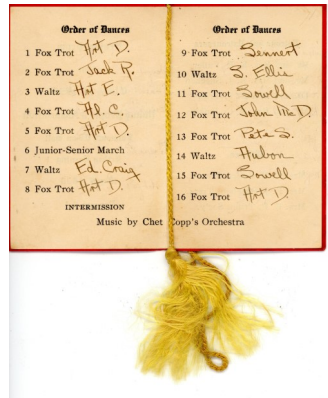 Order of Dances
1 Fox Trot Hot D.
2 Fox Trot Jack R.
3 Waltz Hot E.
4 Fox Trot Al. C.
5 Fox Trot Hot D.
6 Junior-Senior March
7 Waltz Ed. Craig
8 Fox Trot Hot D.
INTERMISSION
Order of Dances
9 Fox Trot Sennert
10 Waltz S. Ellis
11 Fox Trot Sowell
12 Fox Trot John McD.
13 Fox Trot Pete S.
14 Waltz
15 Fox Trot Sowell
16 Fox Trot Hot D
Music by Chet Copp's Orchestra